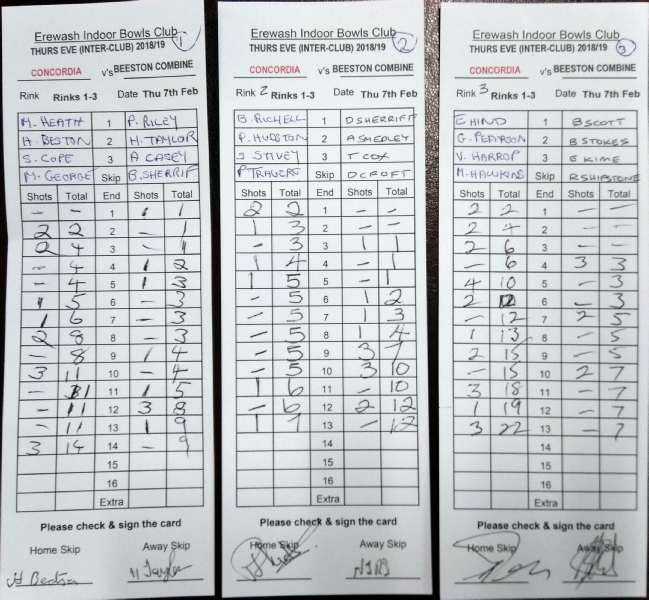 Erewash Indoor Bowls Club
THURS EVE (INTER-CLUB) 2018/19 1
CONCORDIA v's BEESTON COMBINE
Rink Rinks 1-3 Date Thu 7th Feb
M. HEATH 1 P. RILEY
H. BESTON 2 H. TAYLOR
S. COPE 3 A CASEY
M. GEORGE Skip B. SHERRIF
Shots Total End Shots Total
- - 1 1 1
2 2 2 - 1
2 4 3 - 1
- 4 4 1 2
- 4 5 1 3
1 5 6 - 3
1 6 7 - 3
2 8 8 - 3
- 8 9 1 4
3 11 10 - 4
- 11 11 1 5
- 11 12 3 8
- 11 13 1 9
3 14 14 - 9
15
16
Extra
Please check & sign the card
Home Skip Away Skip
H Beston H Taylor
Erewash Indoor Bowls Club
THURS EVE (INTER-CLUB) 2018/19 2
CONCORDIA v's BEESTON COMBINE
Rink 2 Rinks 1-3 Date Thu 7th Feb
B. RICHELL 1 D SHERRIFF
P. HUDSTON 2 A SMEDLEY
S STIVEY 3 T COX
P TRAVERS Skip D CROFT
Shots Total End Shots Total
2 2 1 - -
1 3 2 - -
- 3 3 1 1
1 4 4 - 1
1 5 5 - 1
- 5 6 1 2
- 5 7 1 3
- 5 8 1 4
- 5 9 3 7
- 5 10 3 10
1 6 11 - 10
- 6 12 2 12
1 7 13 - 12
14
15
16
Extra
Please check & sign the card
Home Skip Away Skip
Erewash Indoor Bowls Club
THURS EVE (INTER-CLUB) 2018/19 3
CONCORDIA v's BEESTON COMBINE
Rink 3 Rinks 1-3 Date Thu 7th Feb
E HIND 1 B SCOTT
G. PEARSON 2 B STOKES
V. HARROP 3 G KIME
M. HAWKINS Skip R SHIPSTONE
Shots Total End Shots Total
2 2 1 - -
2 4 2 - -
2 6 3 - -
- 6 4 3 3
4 10 5 - 3
2 12 6 - 3
- 12 7 2 5
1 13 8 - 5
2 15 9 - 5
- 15 10 2 7
3 18 11 - 7
1 19 12 - 7
3 22 13 - 7
14
15
16
Extra
Please check & sign the card
Home Skip Away Skip